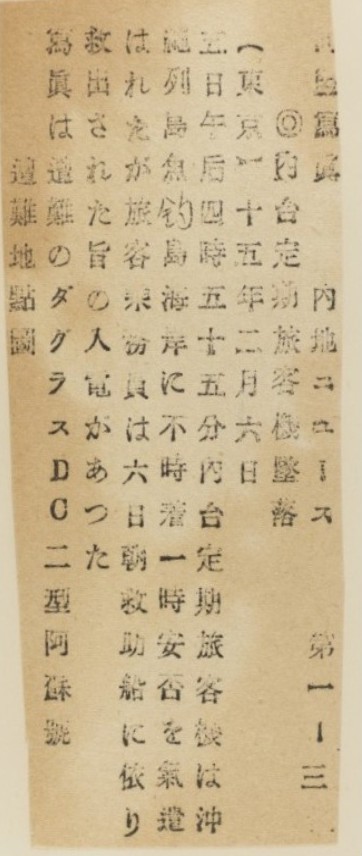 同盟寫眞 内地ニユース 第一ー三
◎内台定期旅客機墜落
(東京―十五年二月六日
五日午后四時五十五分内台定期旅客機は沖
繩列島魚釣島海岸に不時着一時安否を氣遣
はれたが旅客乘務員は六日朝救助船に依り
救出された旨の入電があつた
寫眞は遭難のダグラスDC二型阿蘇號
遭難地點圖